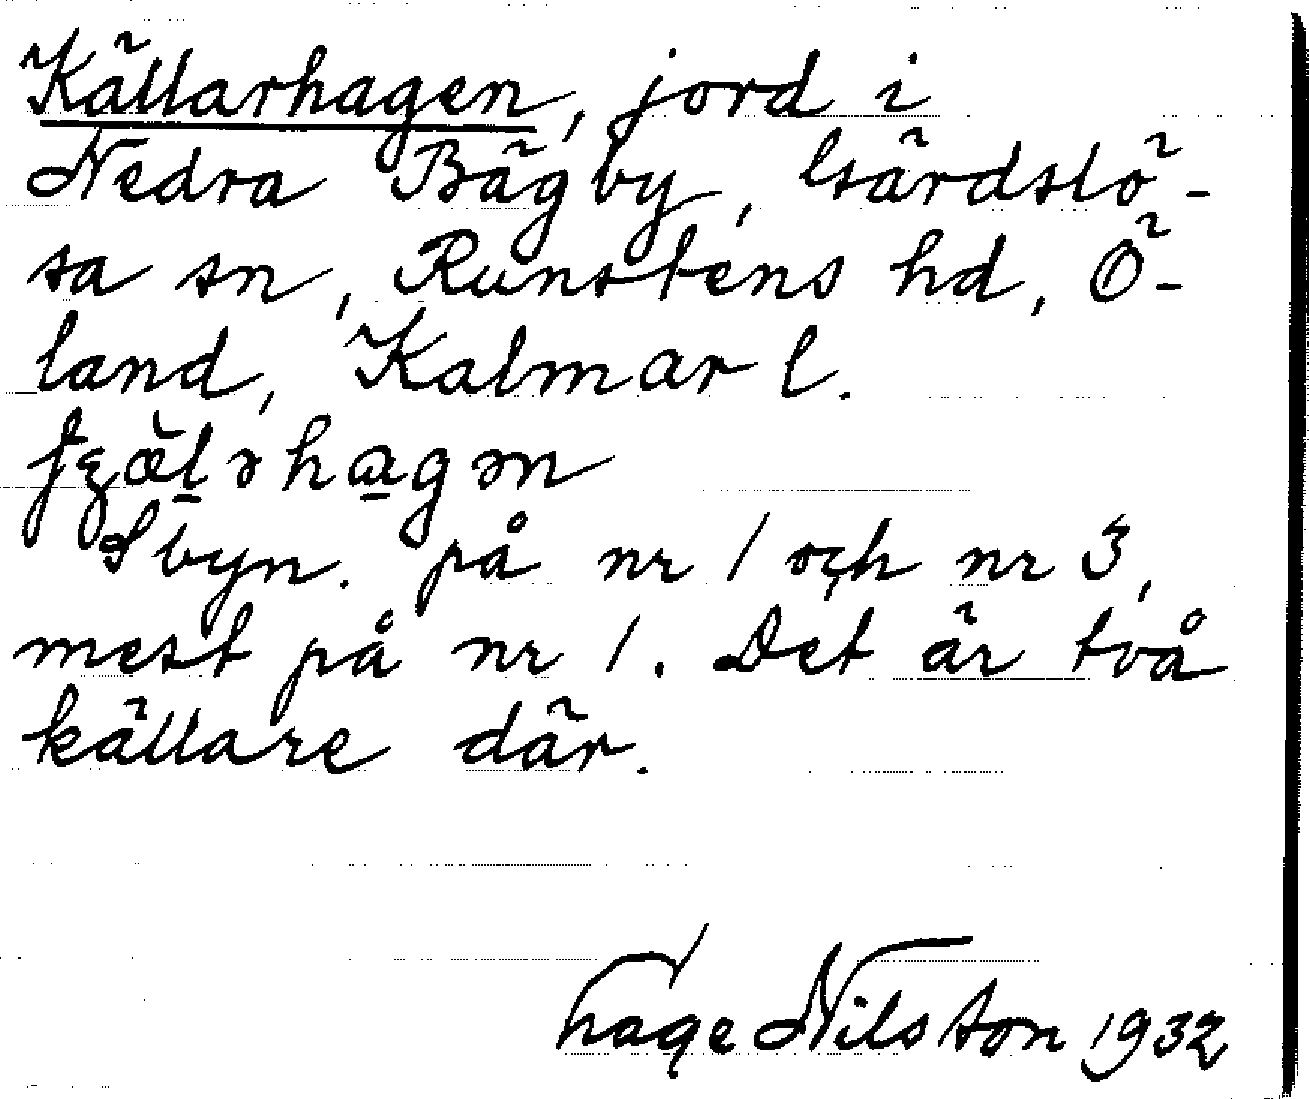 Källarhagen, jord i
Nedra Bägby, Gärdslö-
sa sn, Runstens hd, Ö-
land, Kalmar l.
På nr 1 och nr 3,
mest på nr 1. Det är två
källare där.
Nilsson 1932